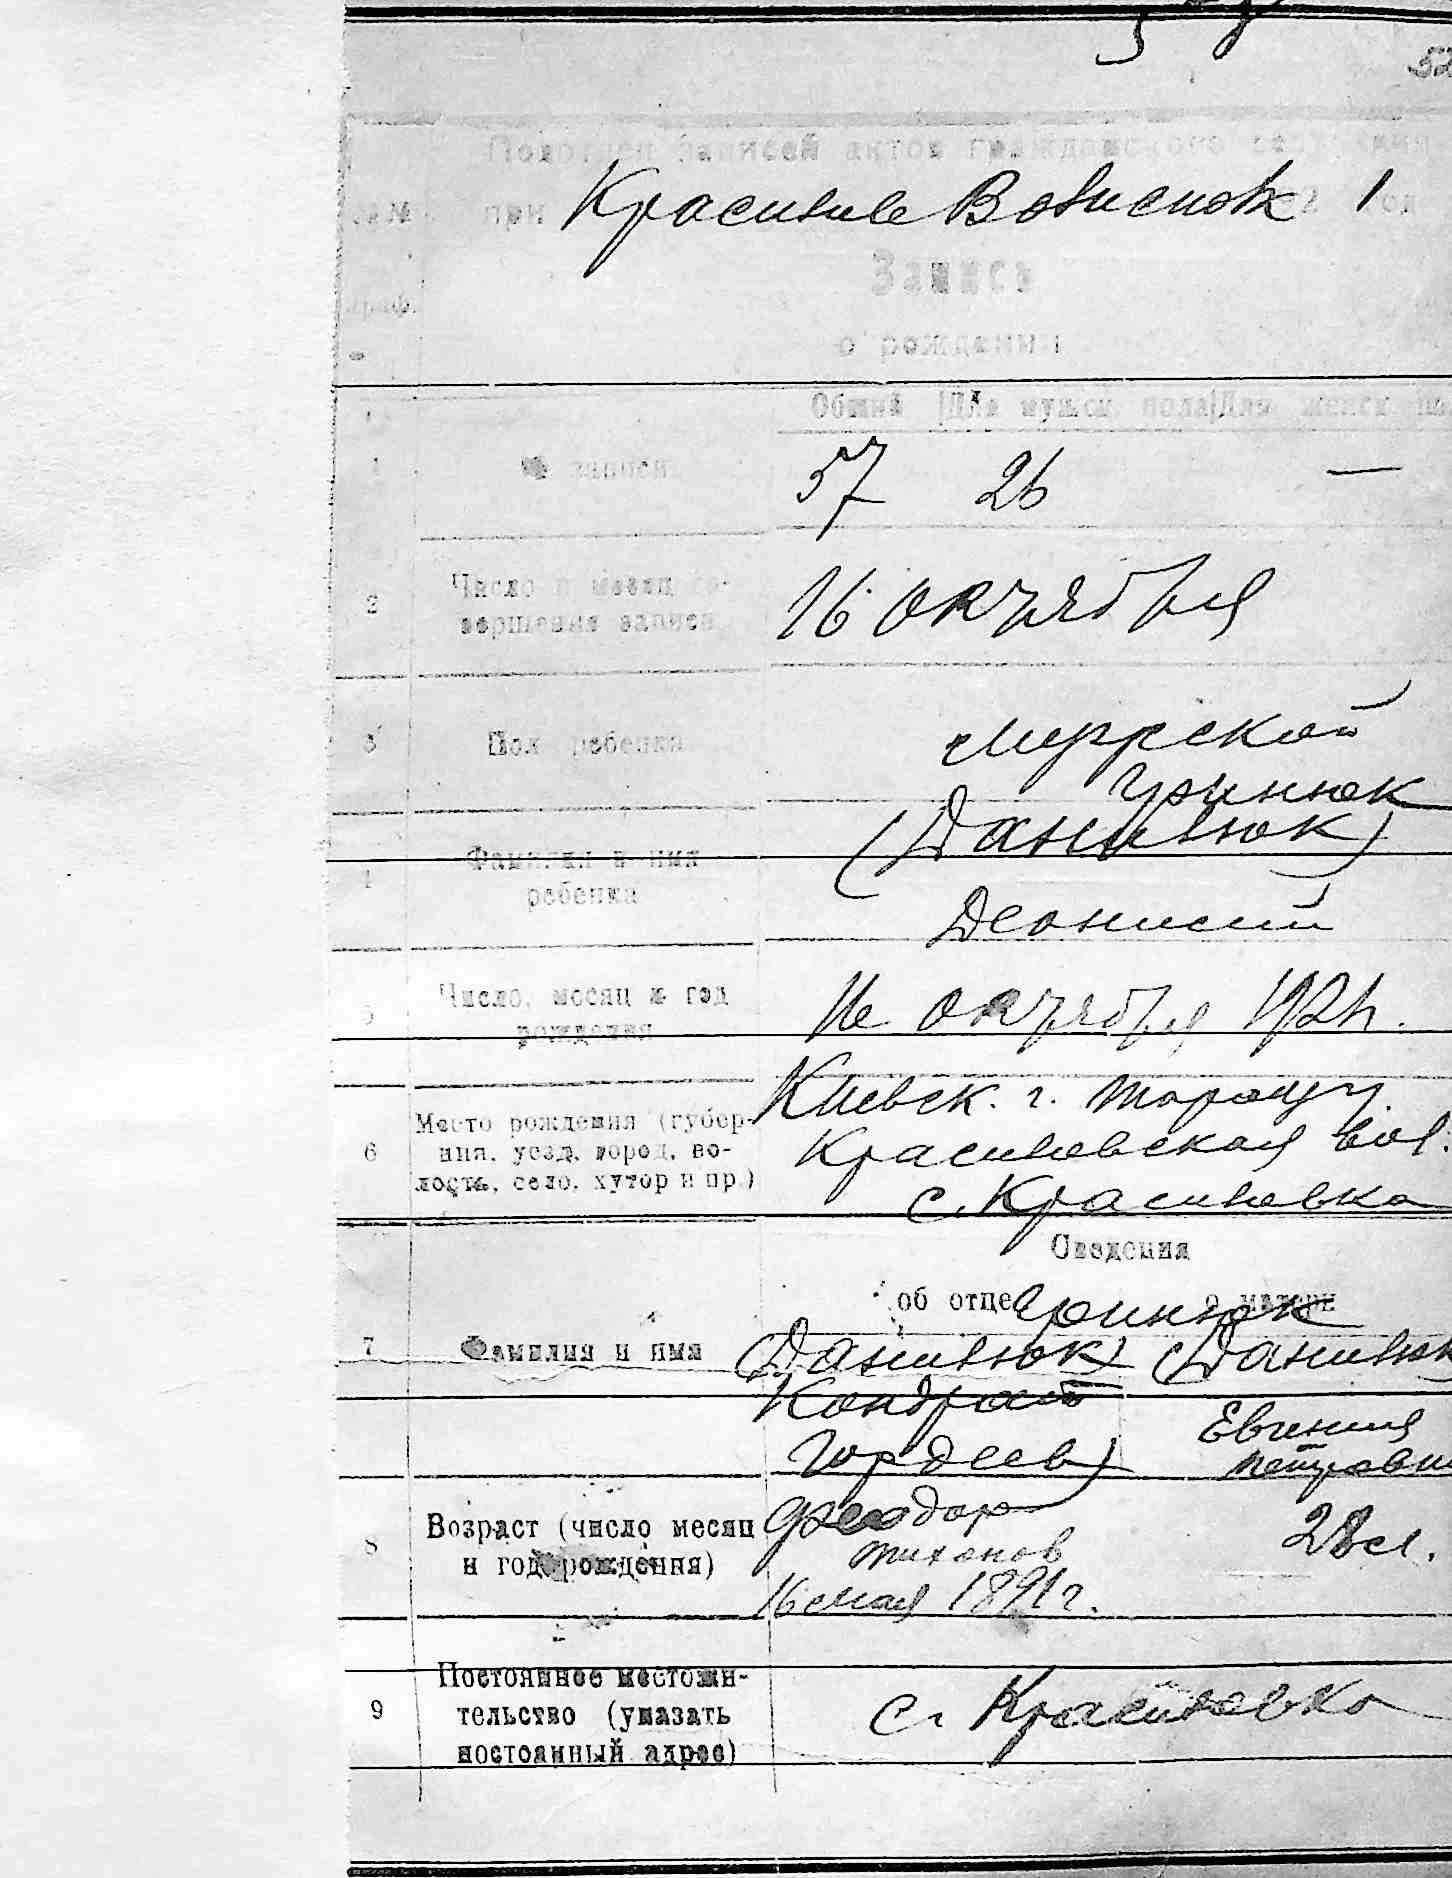 58
52
Подотдел записей актов гражданского состояния
при Красиловс Волиспок 1
Запись
о рождении
Общий Для мужск. пола Для женск.
1 № записи 57 26 —
2 Число и месяц совершения записи 16 октября
3 Пол ребенка Мужской
Гринюк
(Данилюк)
4 Фамилия и имя
ребенка Деонисий
Число, месяц и год
рождения 16 октября 192
Киевск. г. Таращ у.
6 Место рождения (губер-
ния, уезд, город, во-
лость, село, хутор и пр.)
Красиловская вол.
с. Красиловка
Сведения
об отце о матери
Гринюк
7 Фамилия и имя (Данилюк) (Данилюк
Кондрат
Гордеев) Евгения
Петровн
8 Возраст (число месяц
и год рождения)
Феодор
Тихонов
28 л.
16 мая 1891 г.
9 Постоянное местожи-
тельство (указать
постоянный адрес)
с. Красиловка